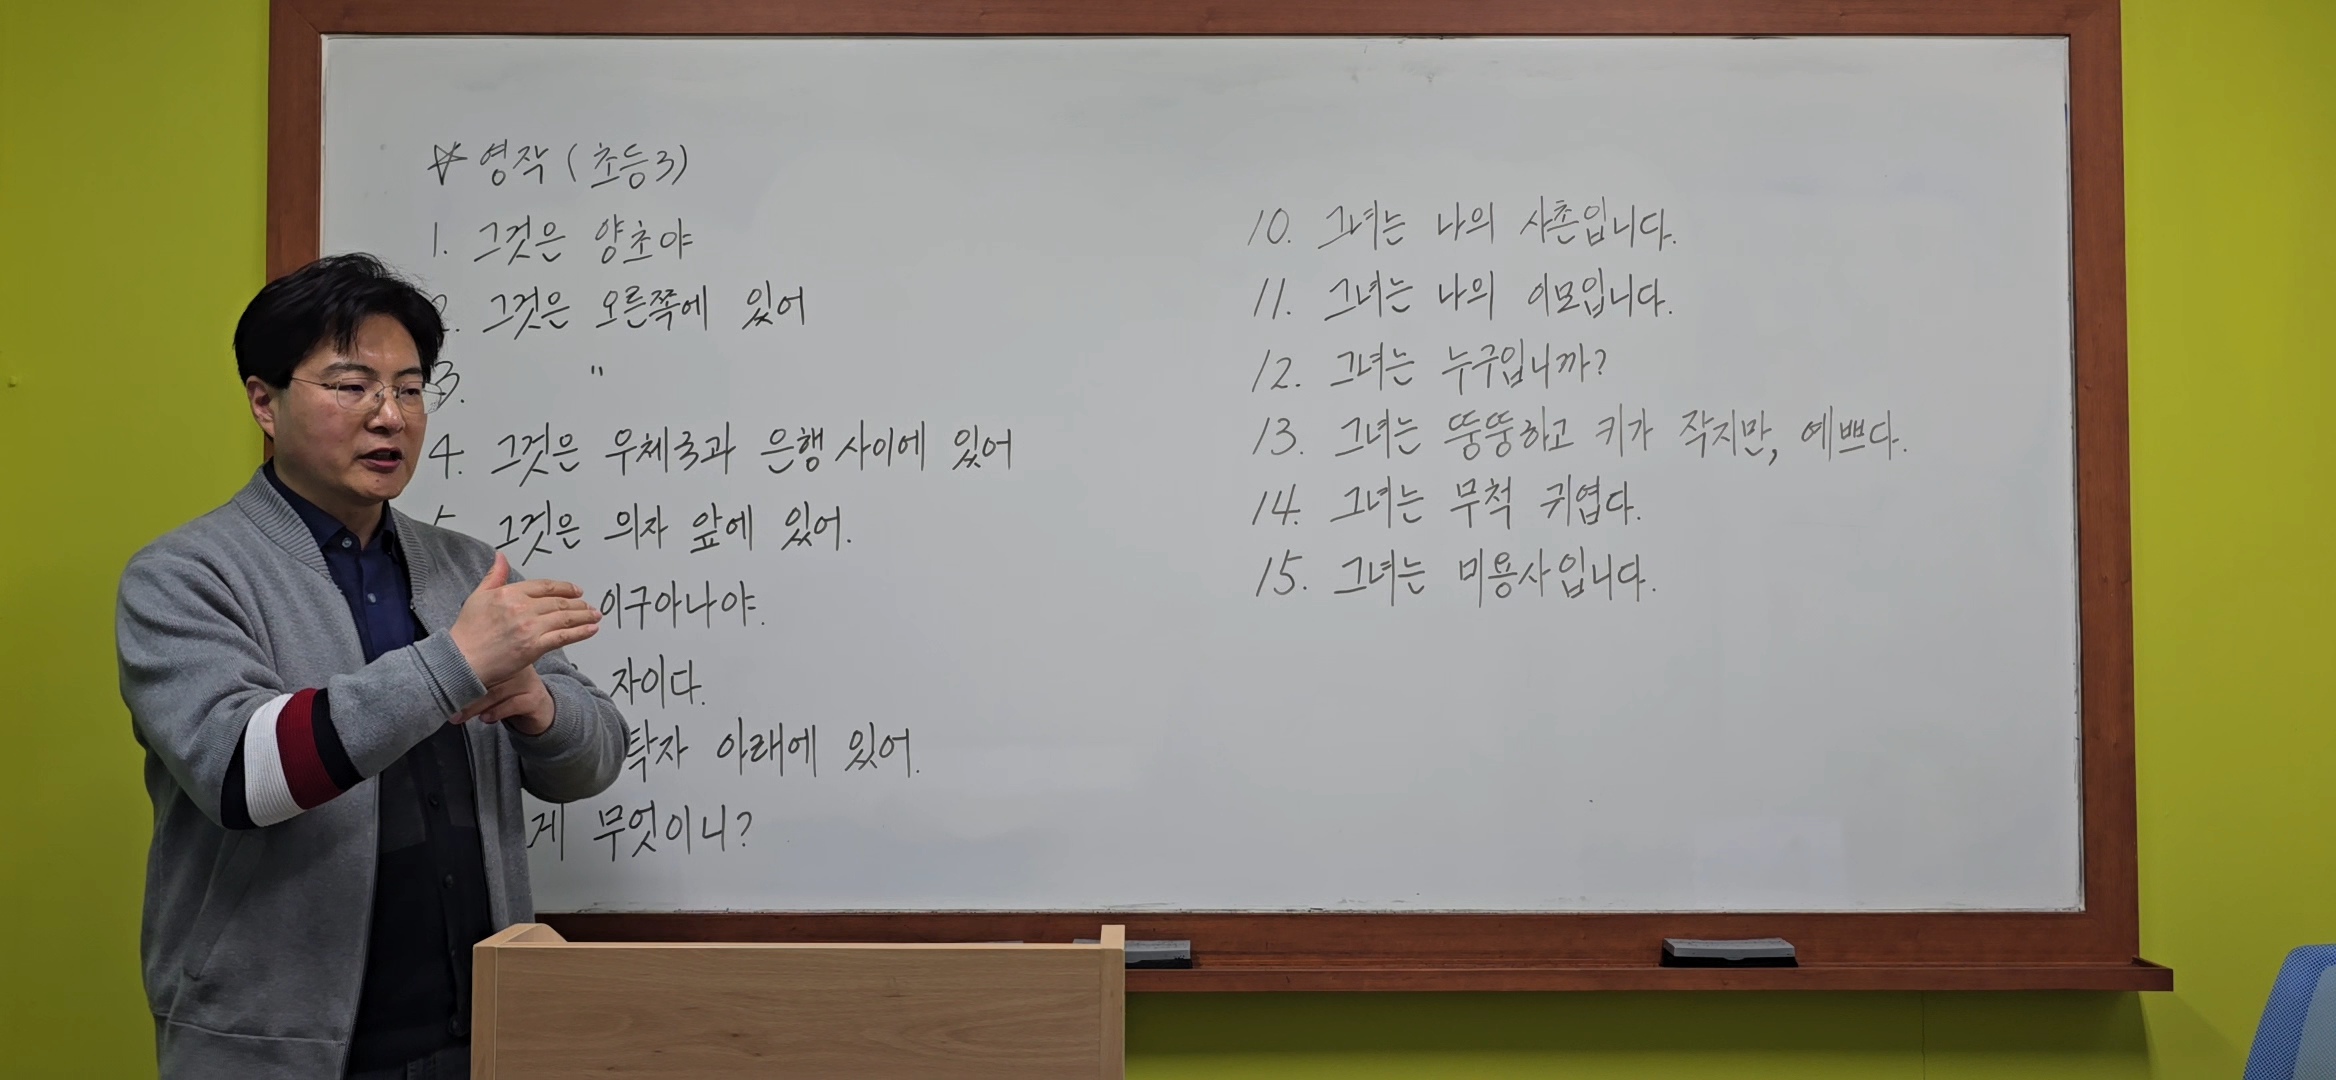 ☆ 영작 (초등3)
1. 그것은 양초야
2. 그것은 오른쪽에 있어
3. "
4. 그것은 우체국과 은행 사이에 있어
그것은 의자 앞에 있어.
이구아나야.
자이다.
탁자 아래에 있어.
게 무엇이니?
10. 그녀는 나의 사촌입니다.
11. 그녀는 나의 이모입니다.
12. 그녀는 누구입니까?
13. 그녀는 뚱뚱하고 키가 작지만, 예쁘다.
14. 그녀는 무척 귀엽다.
15. 그녀는 미용사입니다.